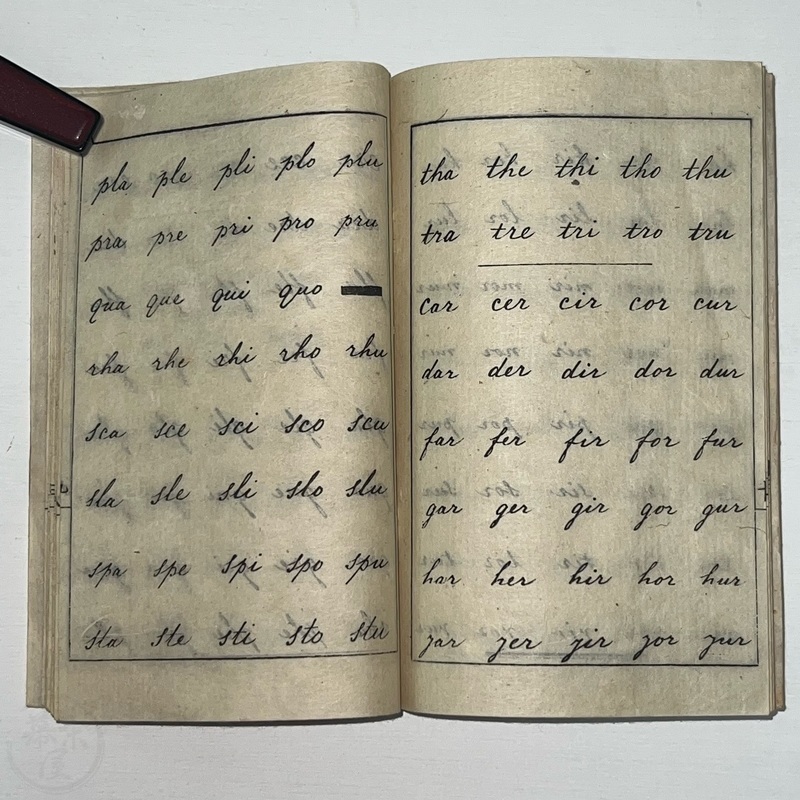 pla ple pli plo plu
pra pre pri pro pru
qua que qui quo
rha rhe rhi rho rhu
sca sce sci sco scu
sla sle sli slo slu
spa spe spi spo spu
sta ste sti sto stu
tha the thi tho thu
tra tre tri tro tru
car cer cir cor cur
dar der dir dor dur
far fer fir for fur
gar ger gir gor gur
har her hir hor hur
jar jer jir jor jur